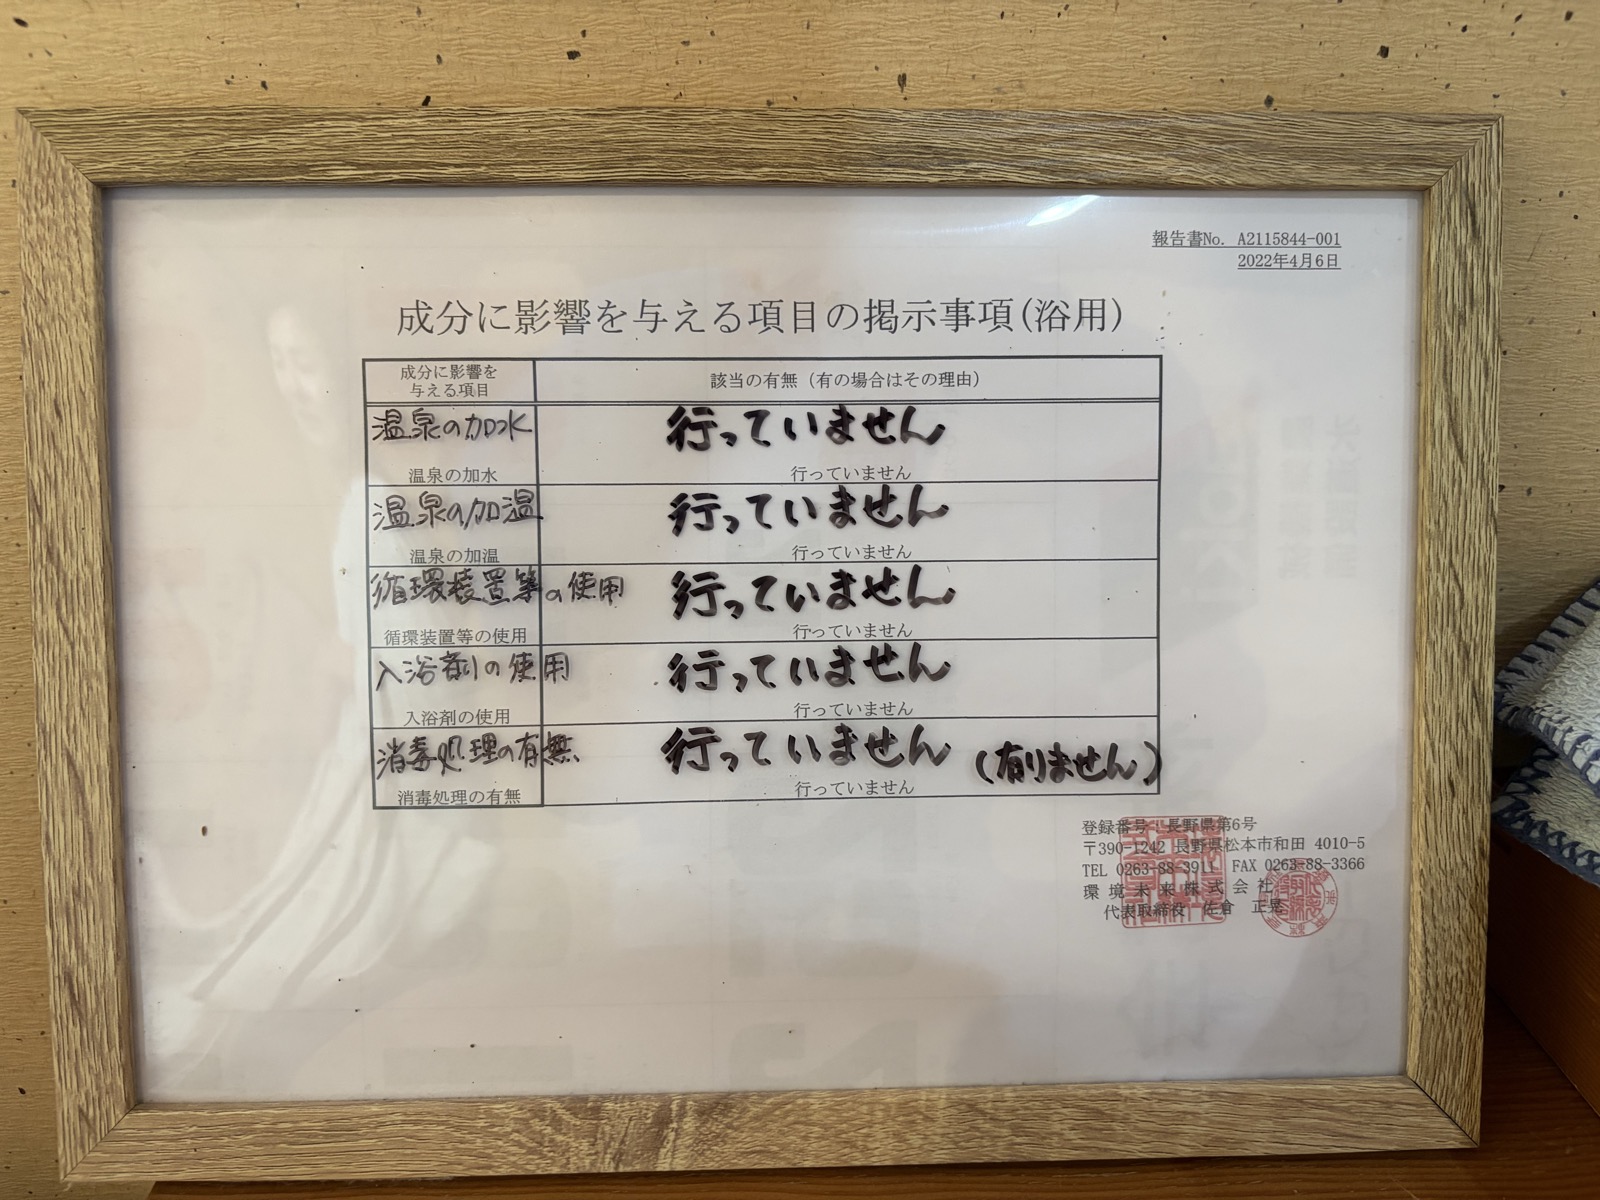 報告書No. A2115844-001
2022年4月6日
成分に影響を与える項目の掲示事項(浴用)
成分に影響を
与える項目
該当の有無（有の場合はその理由）
温泉の加水
行っていません
温泉の加水
行っていません
温泉の加温
行っていません
温泉の加温
行っていません
循環装置等の使用
行っていません
循環装置等の使用
行っていません
入浴剤の使用
行っていません
入浴剤の使用
行っていません
消毒処理の有無
行っていません (有りません)
消毒処理の有無
行っていません
登録番号 長野県第6号
〒390-1242 長野県松本市和田 4010-5
TEL 0263-88-3911 FAX 0263-88-3366
環境未来株式会社
代表取締役 佐倉 正晃